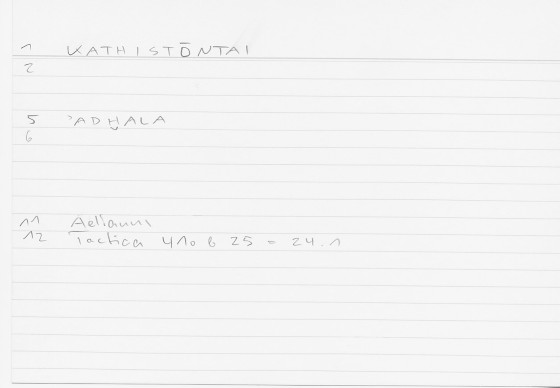 1 KATHISTŌNTAI
2
5 ʿADḤALA
6
11 Aelianus
12 Tactica 410 b 25 = 24.1